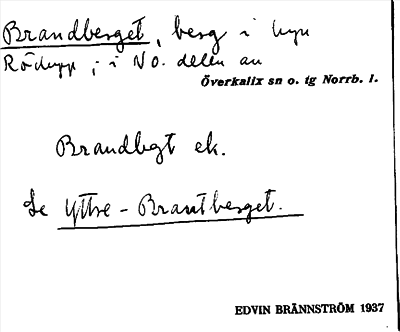 Brandberget, berg i byn
Rödupp i NO. delen av
Överkalix sn o. tg Norrb. l.
Brandbgt ek.
Se Yttre-Brantberget.
EDVIN BRÄNNSTRÖM 1937